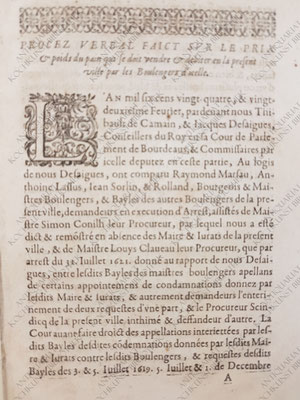 PROCEZ VERBAL FAICT SVR LE PRIX
& poids du pain qui se doit vendre & debiter en la present
ville par les Boulengers d'icelle.
L'AN mil six cens vingt-quatre, & vingt-
deuxiesme Feurier, pardeuant nous Thi-
bault de Camain, & Iacques Desaigues,
Conseillers du Roy en sa Cour de Parle-
ment de Bourdeaux, & Commissaires par
icelle deputez en ceste partie, Au logis
de nous Desaigues, ont comparu Raymond Marsau, An-
thoine Lassus, Iean Sorlin, & Rolland, Bourgeois & Mai-
stres Boulengers, & Bayles des autres Boulengers de la pre-
sent ville, demandeurs en execution d'Arrest, assistés de Mai-
stre Simon Conilh leur Procureur, par lequel nous a esté
dict & remostré en absence des Maire & Iurats de la present
ville, & de Maistre Louys Claueau leur Procureur, que par
arrest du 31. Iuillet 1621. donné au rapport de nous Desai-
gues, entre lesdits Bayles des maistres boulengers apellans
de certains appointemens de condamnations donnez par
lesdits Maire & Iurats, & autrement demandeurs l'enteri-
nement de deux requestes d'vne part, & le Procureur Scin-
dicq de la present ville inthimé & deffandeur d'autre. La
Cour auant faire droict des appellations interiettées par les-
dits Bayles desdites códemnations données par lesdits Mai-
re & Iurats contre lesdits Boulengers, & requestes desdits
Bayles des 3. & 5. Iuillet 1619. 5. Iuillet & 1. de Decembre
A